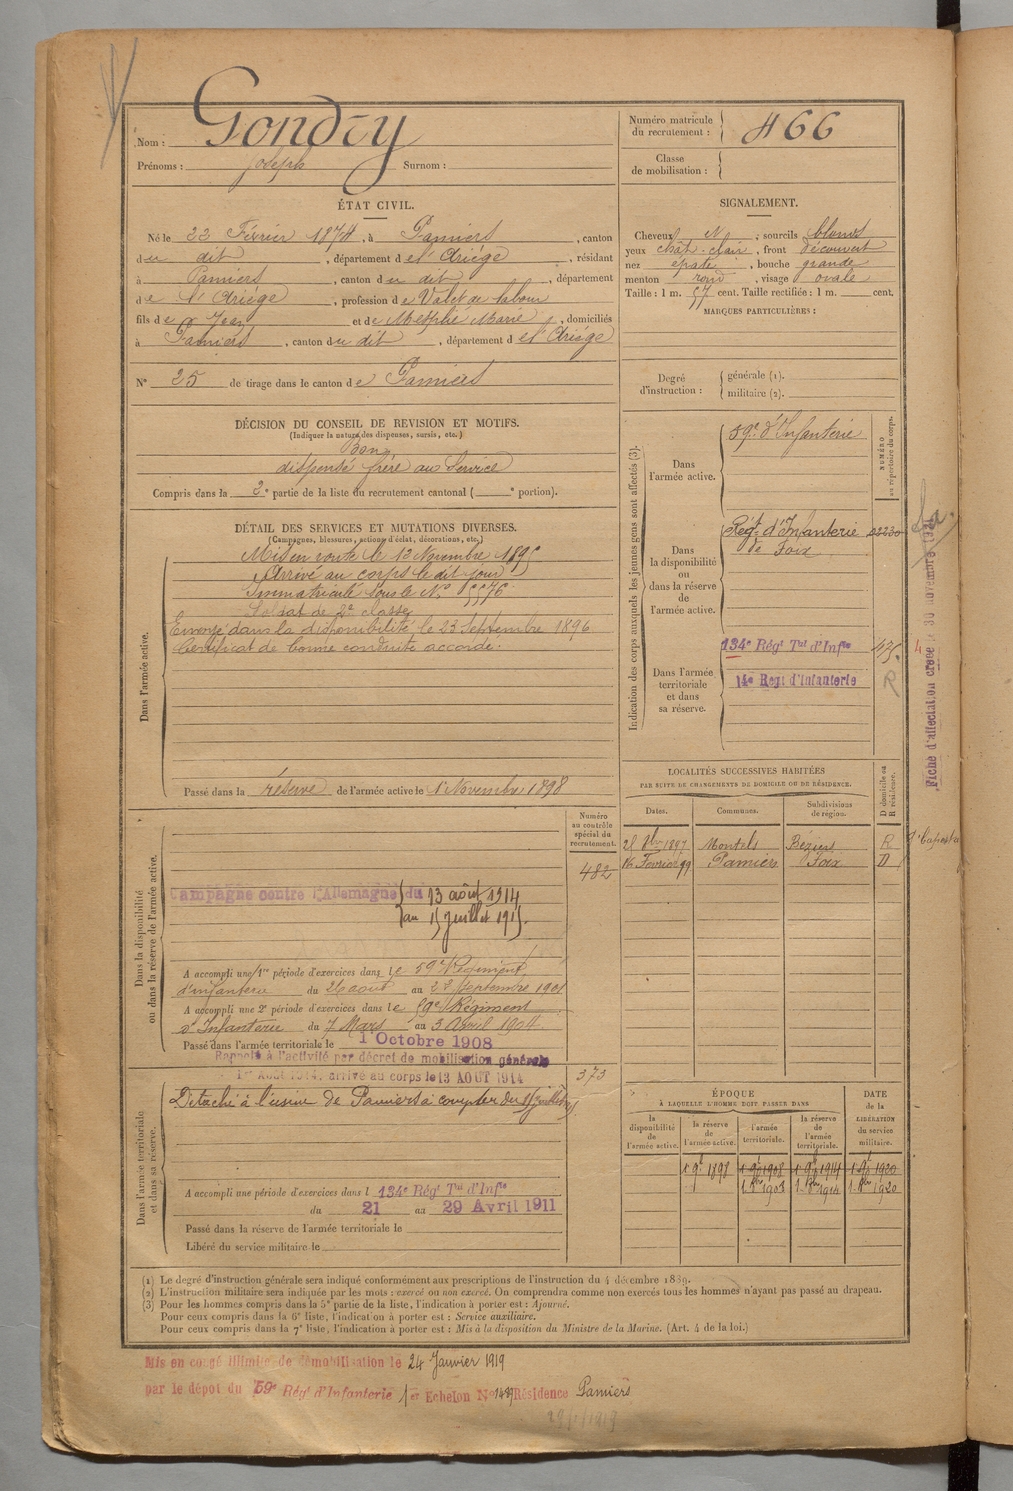 Nom : Gondoy
Prénoms : Joseph Surnom :
Numéro matricule du recrutement : 466
Classe de mobilisation :
ÉTAT CIVIL.
Né le 22 Février 1874, à Pamiers, canton
du dit, département de l'Ariége, résidant
à Pamiers, canton du dit, département
de l'Ariége, profession de Valet de labour
fils de Jean et de Marie, domiciliés
à Pamiers, canton du dit, département de l'Ariége
N° 25 de tirage dans le canton de Pamiers
SIGNALEMENT.
Cheveux N, sourcils blonds
yeux chât-clair, front découvert
nez épaté, bouche grande
menton rond, visage ovale
Taille : 1 m. 57 cent. Taille rectifiée : 1 m. cent.
MARQUES PARTICULIÈRES :
Degré d'instruction : générale (1).
militaire (2).
DÉCISION DU CONSEIL DE REVISION ET MOTIFS.
(Indiquer la nature des dispenses, sursis, etc.)
Bon
dispensé frère au Service
Compris dans la 2e partie de la liste du recrutement cantonal ( e portion).
DÉTAIL DES SERVICES ET MUTATIONS DIVERSES.
(Campagnes, blessures, actions d'éclat, décorations, etc.)
Dans l'armée active.
Mis en route le 12 Novembre 1895
Arrivé au corps le dit jour
Immatriculé sous le N° 5576
Soldat de 2e classe
Envoyé dans la disponibilité le 23 Septembre 1896
Certificat de bonne conduite accordé.
Passé dans la réserve de l'armée active le 1 Novembre 1898
Indication des corps auxquels les jeunes gens sont affectés (3).
NUMÉRO au répertoire du corps.
Dans l'armée active.
59e d'Infanterie
Dans la disponibilité ou dans la réserve de l'armée active.
Régt d'Infanterie de Foix 02230
Dans l'armée territoriale et dans sa réserve.
134e Régt Tal d'Infie 475.
14e Regt d'Infanterie R
Fiche d'affectation créée le 30 novembre
LOCALITÉS SUCCESSIVES HABITÉES
PAR SUITE DE CHANGEMENTS DE DOMICILE OU DE RÉSIDENCE.
Dates. Communes. Subdivisions de région. D domicile ou R résidence.
1897 Montels Béziers R
16 Février 99 Pamiers Foix D
Dans la disponibilité ou dans la réserve de l'armée active.
Numéro au contrôle spécial du recrutement.
482
Campagne contre l'Allemagne du 13 août 1914
au 15 Juillet 1915.
A accompli une 1re période d'exercices dans le 59e Régiment
d'infanterie du 26 aout au 22 Septembre 1901
A accompli une 2e période d'exercices dans le 59e Régiment
d'Infanterie du 7 Mars au 3 Avril 1904
Passé dans l'armée territoriale le 1 Octobre 1908
Rappelé à l'activité par décret de mobilisation générale
1er Août 1914. arrivé au corps le 13 AOUT 1914
373
Dans l'armée territoriale et dans sa réserve.
Détaché à l'usine de Pamiers à compter du 15 Juillet 1915
A accompli une période d'exercices dans l 134e Régt Tal d'Infie
du 21 au 29 Avril 1911
Passé dans la réserve de l'armée territoriale le
Libéré du service militaire le
ÉPOQUE
À LAQUELLE L'HOMME DOIT PASSER DANS
DATE de la LIBÉRATION du service militaire.
la disponibilité de l'armée active. la réserve de l'armée active. l'armée territoriale. la réserve de l'armée territoriale.
1 9bre 1898 1 9bre 1908 1 9bre 1914 1 9bre 1920
1 Xbre 1908 1 Xbre 1914 1 Xbre 1920
(1) Le degré d'instruction générale sera indiqué conformément aux prescriptions de l'instruction du 4 décembre 1889.
(2) L'instruction militaire sera indiquée par les mots : exercé ou non exercé. On comprendra comme non exercés tous les hommes n'ayant pas passé au drapeau.
(3) Pour les hommes compris dans la 5e partie de la liste, l'indication à porter est : Ajourné.
Pour ceux compris dans la 6e liste, l'indication à porter est : Service auxiliaire.
Pour ceux compris dans la 7e liste, l'indication à porter est : Mis à la disposition du Ministre de la Marine. (Art. 4 de la loi.)
Mis en congé illimité de démobilisation le 24 Janvier 1919
par le dépot du 59e Régt d'Infanterie 1er Echelon N° 1489 Résidence Pamiers